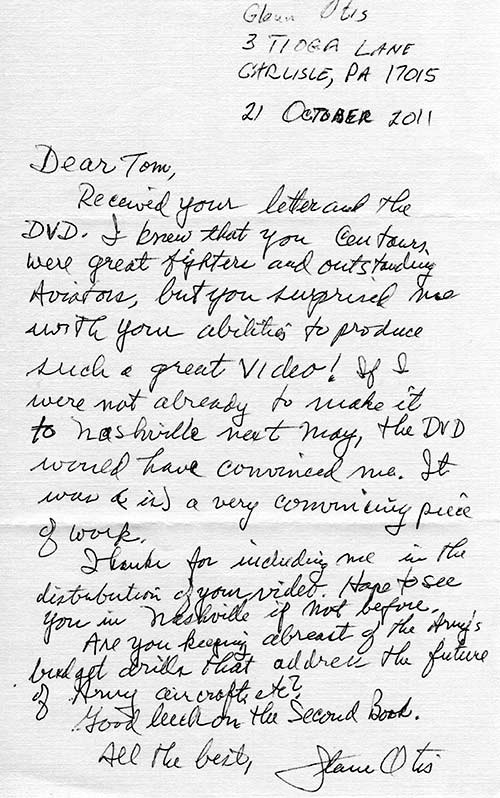 Glenn Otis
3 TIOGA LANE
CARLISLE, PA 17015
21 OCTOBER 2011
Dear Tom,
Received your letter and the
DVD. I knew that you Centaurs
were great fighters and outstanding
Aviators, but you surprised me
with your abilities to produce
such a great Video! If I
were not already to make it
to Nashville next May, the DVD
would have convinced me. It
was (& is) a very convincing piece
of work.
Thanks for including me in the
distribution of your video. Hope to see
you in Nashville if not before.
Are you keeping abreast of the Army's
budget drills that address the future
of Army aircraft, etc?
Good luck on the Second Book.
All the best,
Glenn Otis